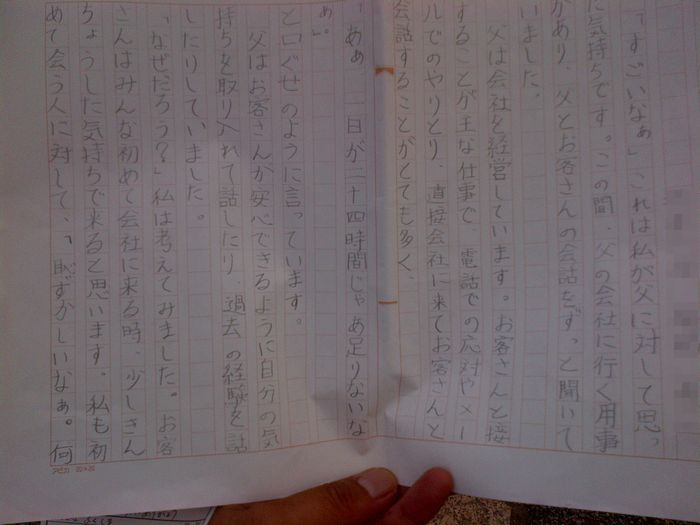 「すごいなぁ」これは私が父に対して思っ
た気持ちです。この間、父の会社に行く用事
があり、父とお客さんの会話をずっと聞いて
いました。
父は会社を経営しています。お客さんと接
することが主な仕事で、電話での応対やメー
ルでのやりとり、直接会社に来てお客さんと
会話することがとても多く、
「あぁ、一日が二十四時間じゃあ足りないな
ぁ」
と口ぐせのように言っています。
父はお客さんが安心できるように自分の気
持ちを取り入れて話したり、過去の経験を話
したりしていました。
「なぜだろう?」私は考えてみました。お客
さんはみんな初めて会社に来る時、少しきん
ちょうした気持ちで来ると思います。私も初
めて会う人に対して、「恥ずかしいなぁ。何
アピカ 20×20